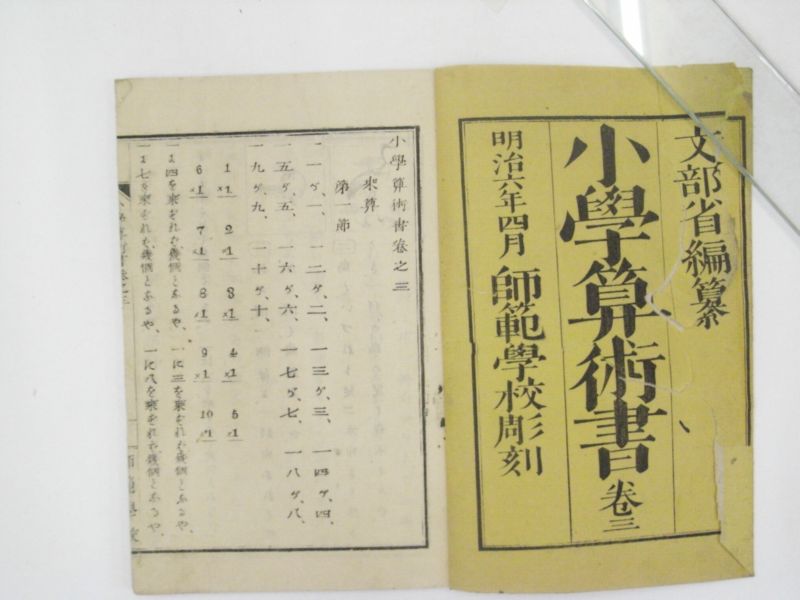 文部省編纂
小學算術書 卷三
明治六年四月 師範學校彫刻
小學算術書卷之三
乘算
第一節
一一ガ、一、 一二ガ、二、 一三ガ、三、 一四ガ、四、
一五ガ、五、 一六ガ、六、 一七ガ、七、 一八ガ、八、
一九ガ、九、 一十ガ、十、
1 2 3 4 5
×1 ×1 ×1 ×1 ×1
6 7 8 9 10
×1 ×1 ×1 ×1 ×1
一に四を乘ずれば幾個となるや、 一に三を乘ずれば幾個となるや、
一に七を乘ずれば幾個となるや、 一に八を乘ずれば幾個となるや、
小學算術書卷之三
師範學校